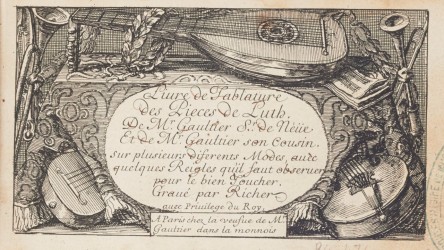 Liure de Tablature
des Pieces de Luth,
De Mr. Gaultier Sr. de Nëüe
Et de Mr. Gaultier son Cousin,
sur plusieurs diferents Modes, auec
quelques Reigles qu'il faut obseruer
pour le bien Toucher,
Graué par Richer
auec Priuilege du Roy,
A Paris chez la veufue de Mr.
Gaultier dans la monnois